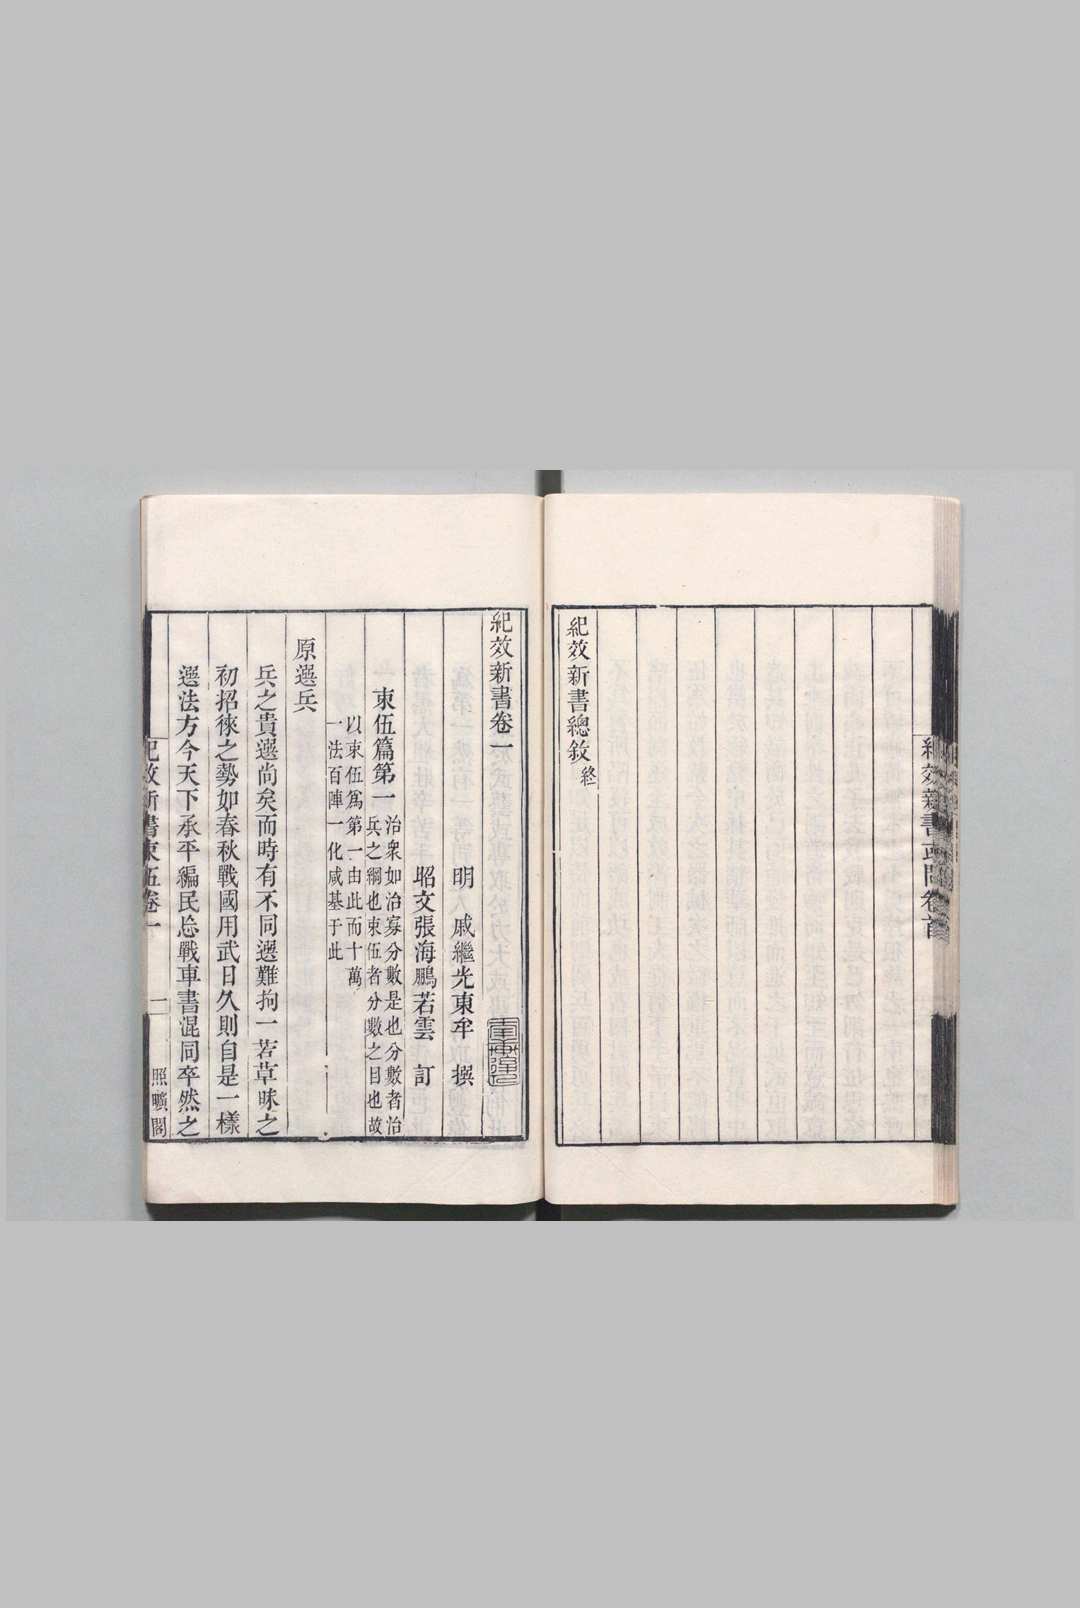 紀效新書總敘終
紀效新書卷一
明　戚繼光東牟　撰
昭文張海鵬若雲　訂
束伍篇第一
治衆如治寡分數是也分數者治
兵之綱也束伍者分數之目也故
以束伍爲第一由此而十萬
一法百陣一化咸基于此
原選兵
兵之貴選尚矣而時有不同選難拘一若草昧之
初招徠之勢如春秋戰國用武日久則自是一樣
選法方今天下承平編民忘戰車書混同卒然之
紀效新書束伍卷一
一
照曠閣